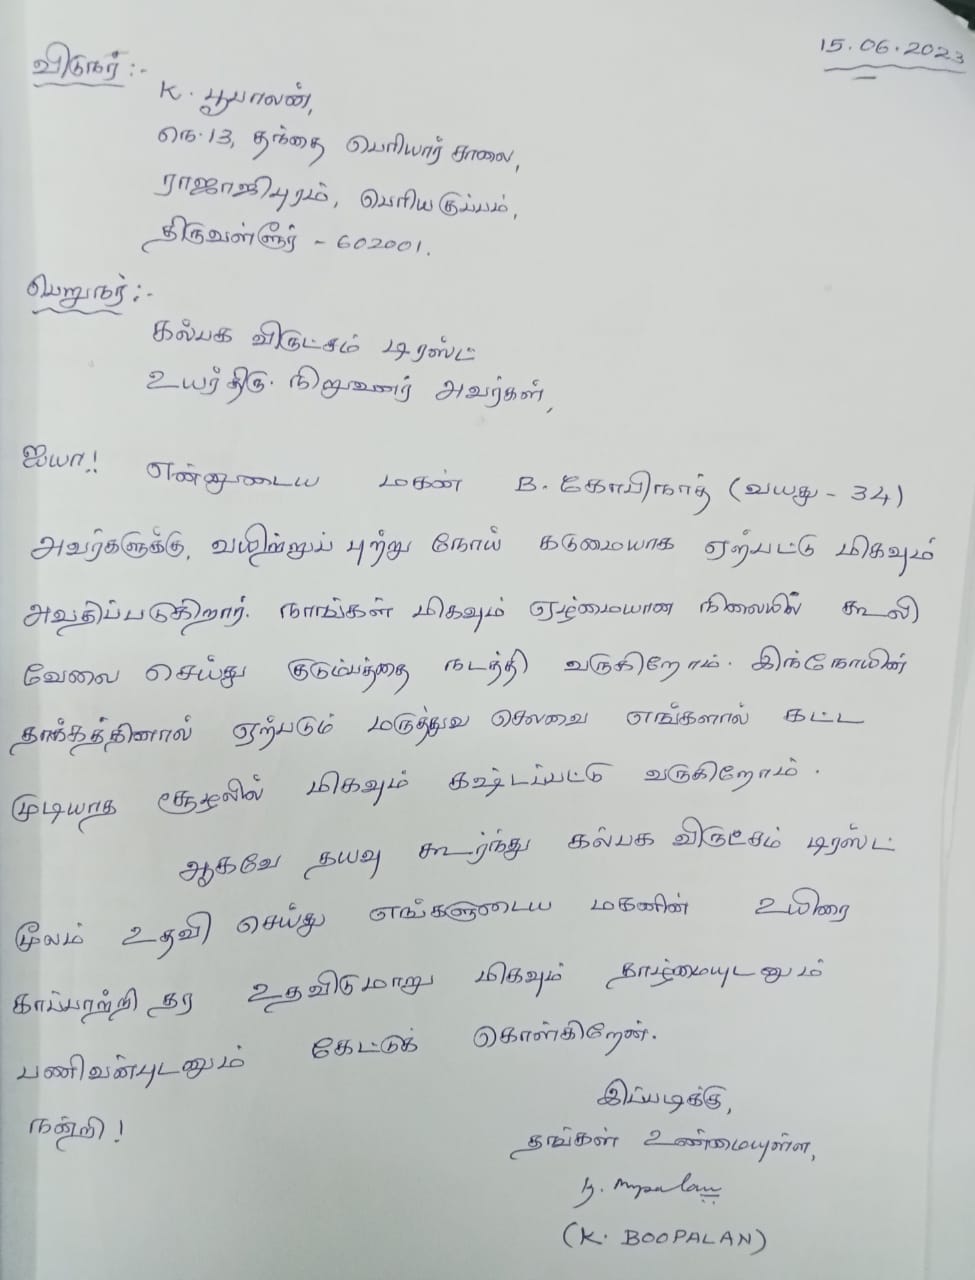 15.06.2023
விடுநர் :-
K. பூபாலன்,
நெ.13, தந்தை பெரியார் சாலை,
ராஜாஜிபுரம், பெரியகுப்பம்,
திருவள்ளூர் - 602001.
பெறுநர் :-
கல்பக விருட்சம் டிரஸ்ட்
உயர்திரு. நிறுவனர் அவர்கள்,
ஐயா! என்னுடைய மகன் B. கோபிநாத் (வயது - 34)
அவர்களுக்கு, வயிற்றுப் புற்று நோய் கடுமையாக ஏற்பட்டு மிகவும்
அவதிப்படுகிறார். நாங்கள் மிகவும் ஏழ்மையான நிலையில் கூலி
வேலை செய்து குடும்பத்தை நடத்தி வருகிறோம். இந்நோயின்
தாக்கத்தினால் ஏற்படும் மருத்துவ செலவை எங்களால் கட்ட
முடியாத சூழலில் மிகவும் கஷ்டப்பட்டு வருகிறோம்.
ஆகவே தயவு கூர்ந்து கல்பக விருட்சம் டிரஸ்ட்
மூலம் உதவி செய்து எங்களுடைய மகனின் உயிரை
காப்பாற்றி தர உதவிடுமாறு மிகவும் தாழ்மையுடனும்
பணிவன்புடனும் கேட்டுக் கொள்கிறேன்.
நன்றி!
இப்படிக்கு,
தங்கள் உண்மையுள்ள,
(K. BOOPALAN)